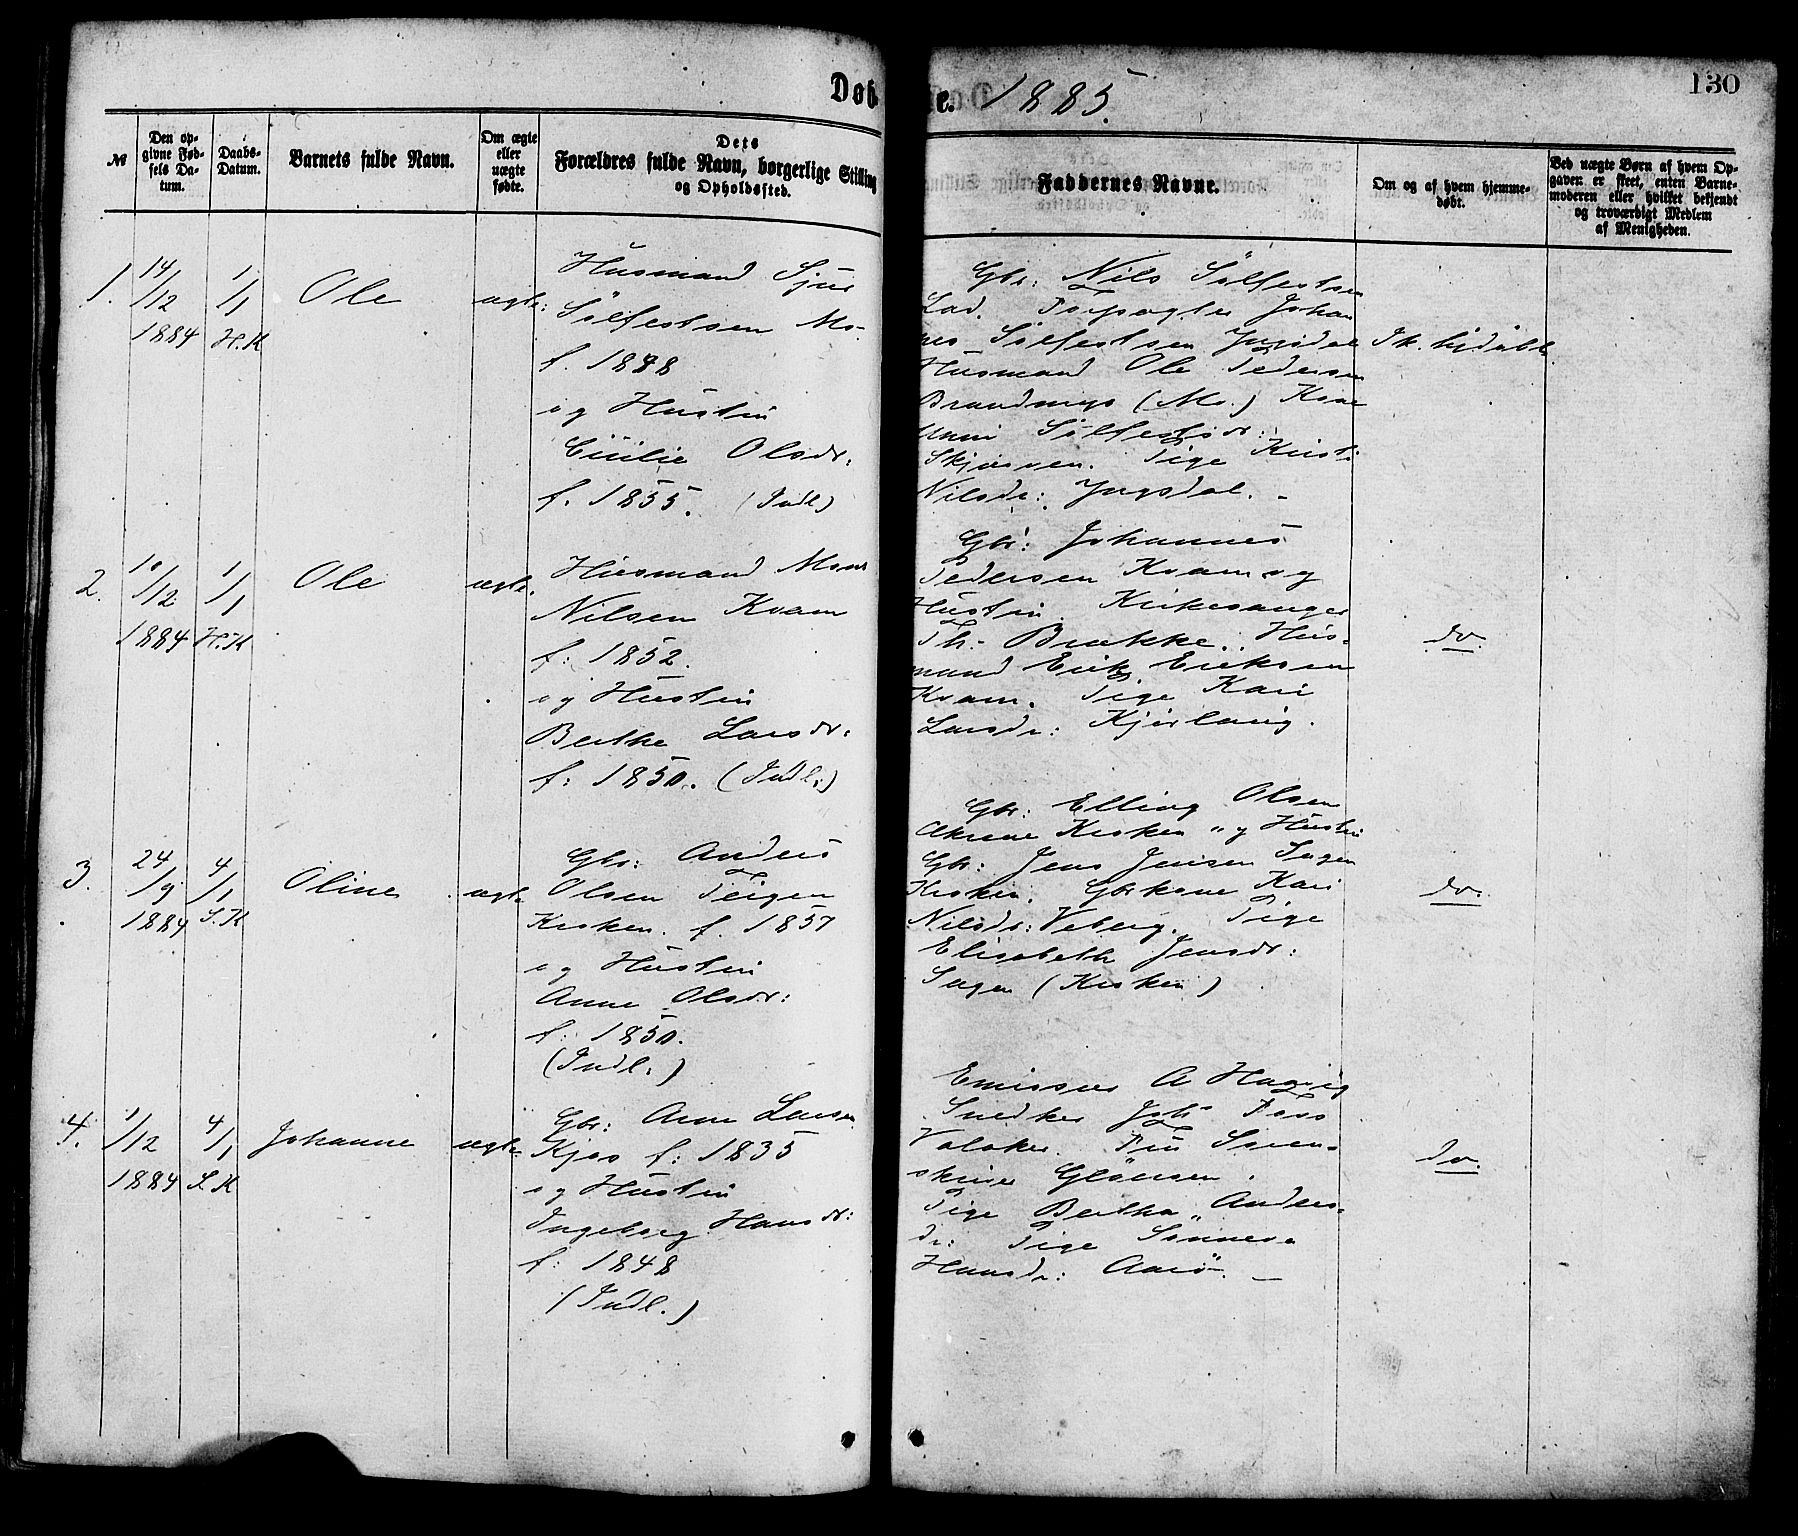 Døb
e. 1885.
130
№
Den op-
givne Fød-
sels Da-
tum.
Daabs-
Datum.
Barnets fulde Navn.
Om ægte
eller
uægte
fødte.
Dets
Forældres fulde Navn, borgerlige Stilling
og Opholdssted.
Faddernes Navne.
Om og af hvem hjemme-
døbt.
Ved uægte Børn af hvem Op-
gaven er skeet, enten Barne-
moderen eller hvilket bekjendt
og troværdigt Medlem
af Menigheden.
1.
14/12
1884
1/1
H.K
Ole
ægte:
Husmand Sjur
Sølfestsen Mo-
f. 1848
og Hustru
Cicilie Olsdr:
f. 1855. (Indl.)
Gbr: Nils Sølfestsen
Lad. Johan
nes Sølfestsen Yngsdal
Husmand Ole Pedersen
(Mo.) Kone
Unni Sølfestdr:
Skjørsven. Pige Kristi
Nilsdr: Yngsdal. -
Pk. hjdøbt
2.
10/12
1884
1/1
H.K
Ole
ægte.
Husmand Mons
Nilsen Kvam
f: 1852.
og Hustru
Berthe Larsdr:
f: 1850. (Indl:)
Gbr: Johannes
Pedersen Kvam og
Hustru. Kirkesanger
Th. Brække. Hus-
mand Erik Eriksen
Kvam. Pige Kari
Larsdr: Kjørlaug.
do.
3.
24/9
1884
4/1
S.K
Oline
ægte
Gbr: Anders
Olsen Teigen
Kroken. f. 1857
og Hustru
Anne Olsdr:
f: 1850.
(Indl:)
Gbr: Elling Olsen
Kroken og Hustru
Gbr: Jens Jensen Hagen
Kroken. Gbrkone Kari
Nilsdr: Veberg. Pige
Elisabeth Jensdr:
Hagen (Kroken)
do.
4.
1/12
1884
4/1
S.K
Johanne
ægte
Gbr: Arne Larsen
Kjos f: 1835
og Hustru
Ingeborg Hansdr:
f: 1848
(Indl.)
Emissær A Hagvig
Snedker Joh.
Valaker. Fru Søren-
skriver Gløersen.
Pige Bertha Anders-
dr: Pige Sønneva
Hansdr: Aarø. -
do.